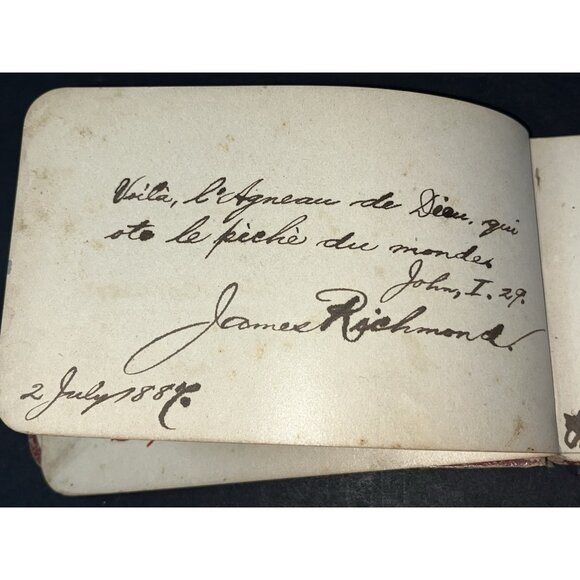 Voilà, l'Agneau de Dieu, qui
ote le pichè du monde.
John, I. 29.
James Richmond.
2 July 1887.